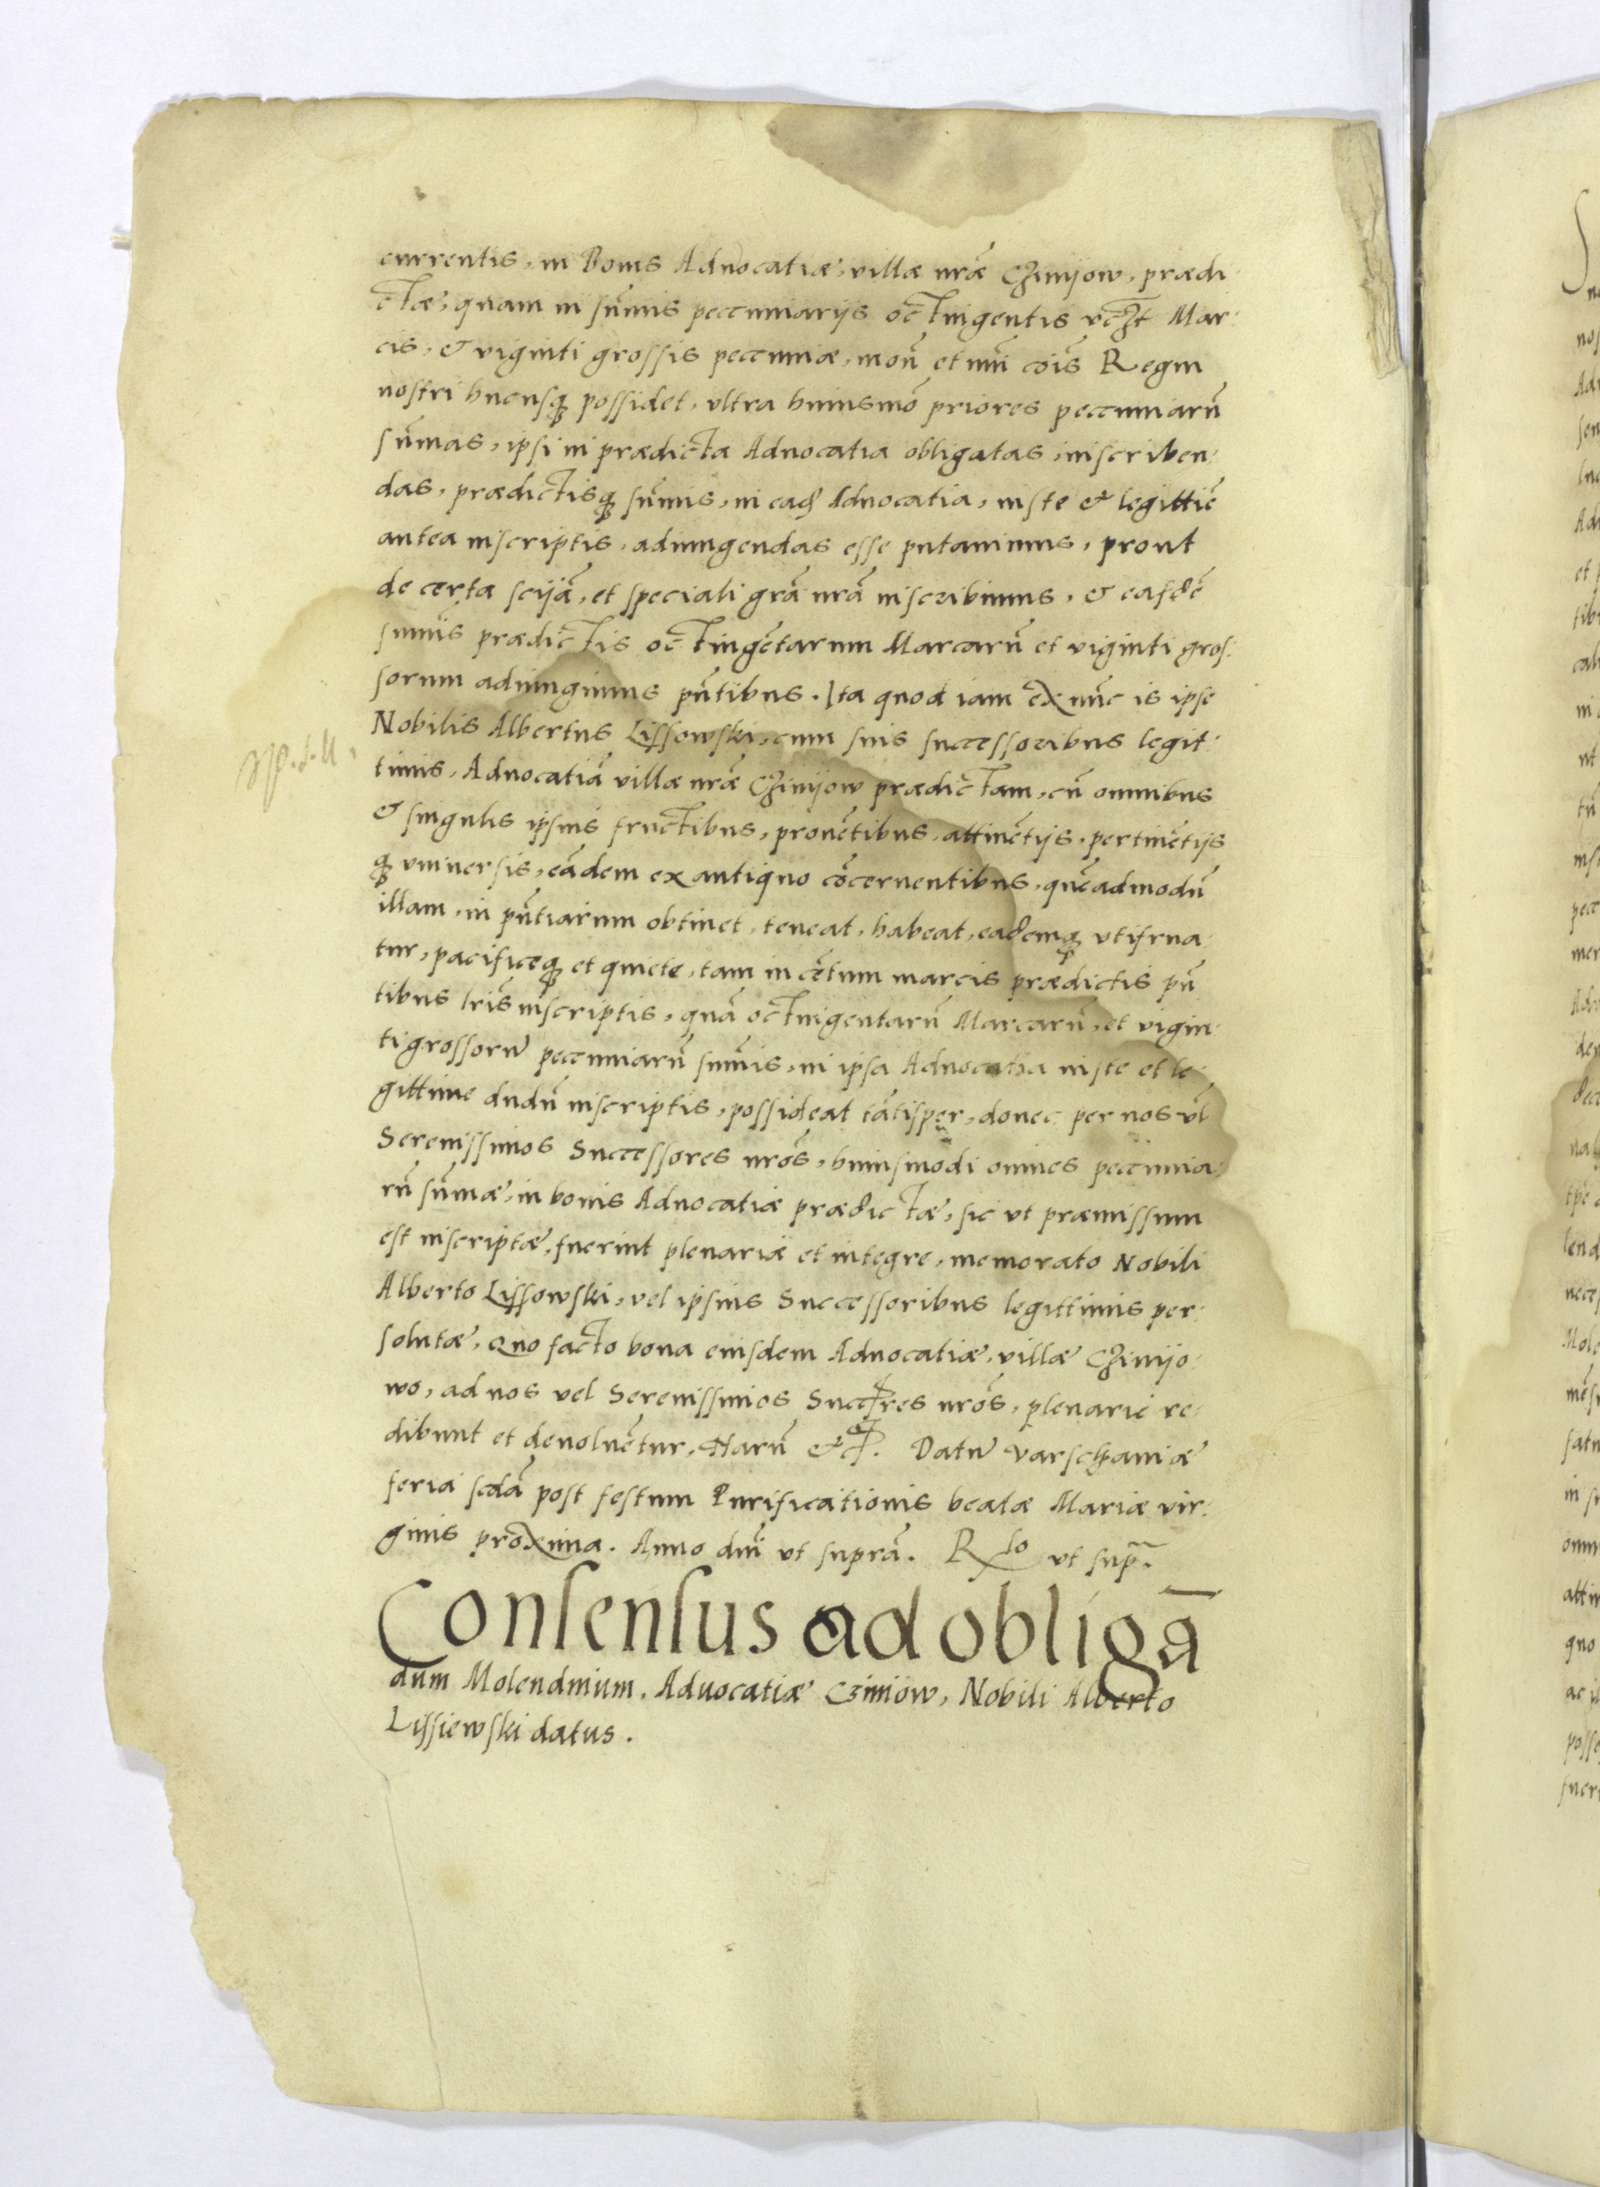 currentis, in Bonis Aduocatiæ, villæ nræ̃ Chiniow, prædi:
ctæ, quam in sum̃is pecuniarijs octingentis Mar:
cis, & viginti grossis pecuniæ, moñ et nr̃i cõis Regni
nostri hucusq possidet, vltra huiusmõ priores pecuniarũ
sum̃as, ipsi in prædicta Aduocatia obligatas, inscriben:
das, prædictisq sum̃is, in Aduocatia, iuste & legittiẽ
antea inscriptis, adiungendas esse putauimus, prout
de certa sciẽa, et speciali grã nrã inscribimus, & easdẽ
sum̃is prædictis octingẽtarum Marcarũ et viginti gros:
sorum adiungimus pñtibus. Ita quod iam ex nũc is ipse
Nobilis Albertus Lissowski, cum suis successoribus legit:
timis, Aduocatiã villæ nræ̃ Chiniow prædictam, cũ omnibus
& singulis ipsius fructibus, prouẽtibus, attinẽtijs, pertinẽtijs
q vniuersis, eãdem ex antiquo cõcernentibus, quẽadmodũ
illam, in pñtiarum obtinet, teneat, habeat, eademq vtifrua:
tur, pacificeq et quiete, tam in cẽtum marcis prædictis pñ
tibus lr̃is inscriptis, quã octingentarũ Marcarũ, et vigin:
ti grossorũ pecuniarũ sum̃is, in ipsa Aduocatia iuste et le:
gittime dudũ inscriptis, possideat tãtisper, donec per nos vl̃
Serenissimos Successores nrõs, huiusmodi omnes pecunia:
rũ sum̃æ, in bonis Aduocatiæ prædictæ, sic vt præmissum
est inscriptæ, fuerint plenariæ et integre, memorato Nobili
Alberto Lissowski, vel ipsius Successoribus legittimis per:
solutæ, Quo facto bona eiusdem Aduocatiæ, villæ Chinijo:
wo, ad nos vel Serenissimos Succres nrõs, plenarie re:
dibunt et deuoluẽtur, Harũ &c. Datũ Varschauiæ
feria scdã post festum Purificationis beatæ Mariæ vir:
ginis proxima. Anno dnĩ vt suprã. Rlo vt sup̃.
Consensus ad obligã
dum Molendinum, Aduocatiæ Cziniow, Nobili Alberto
Lissiewski datus.